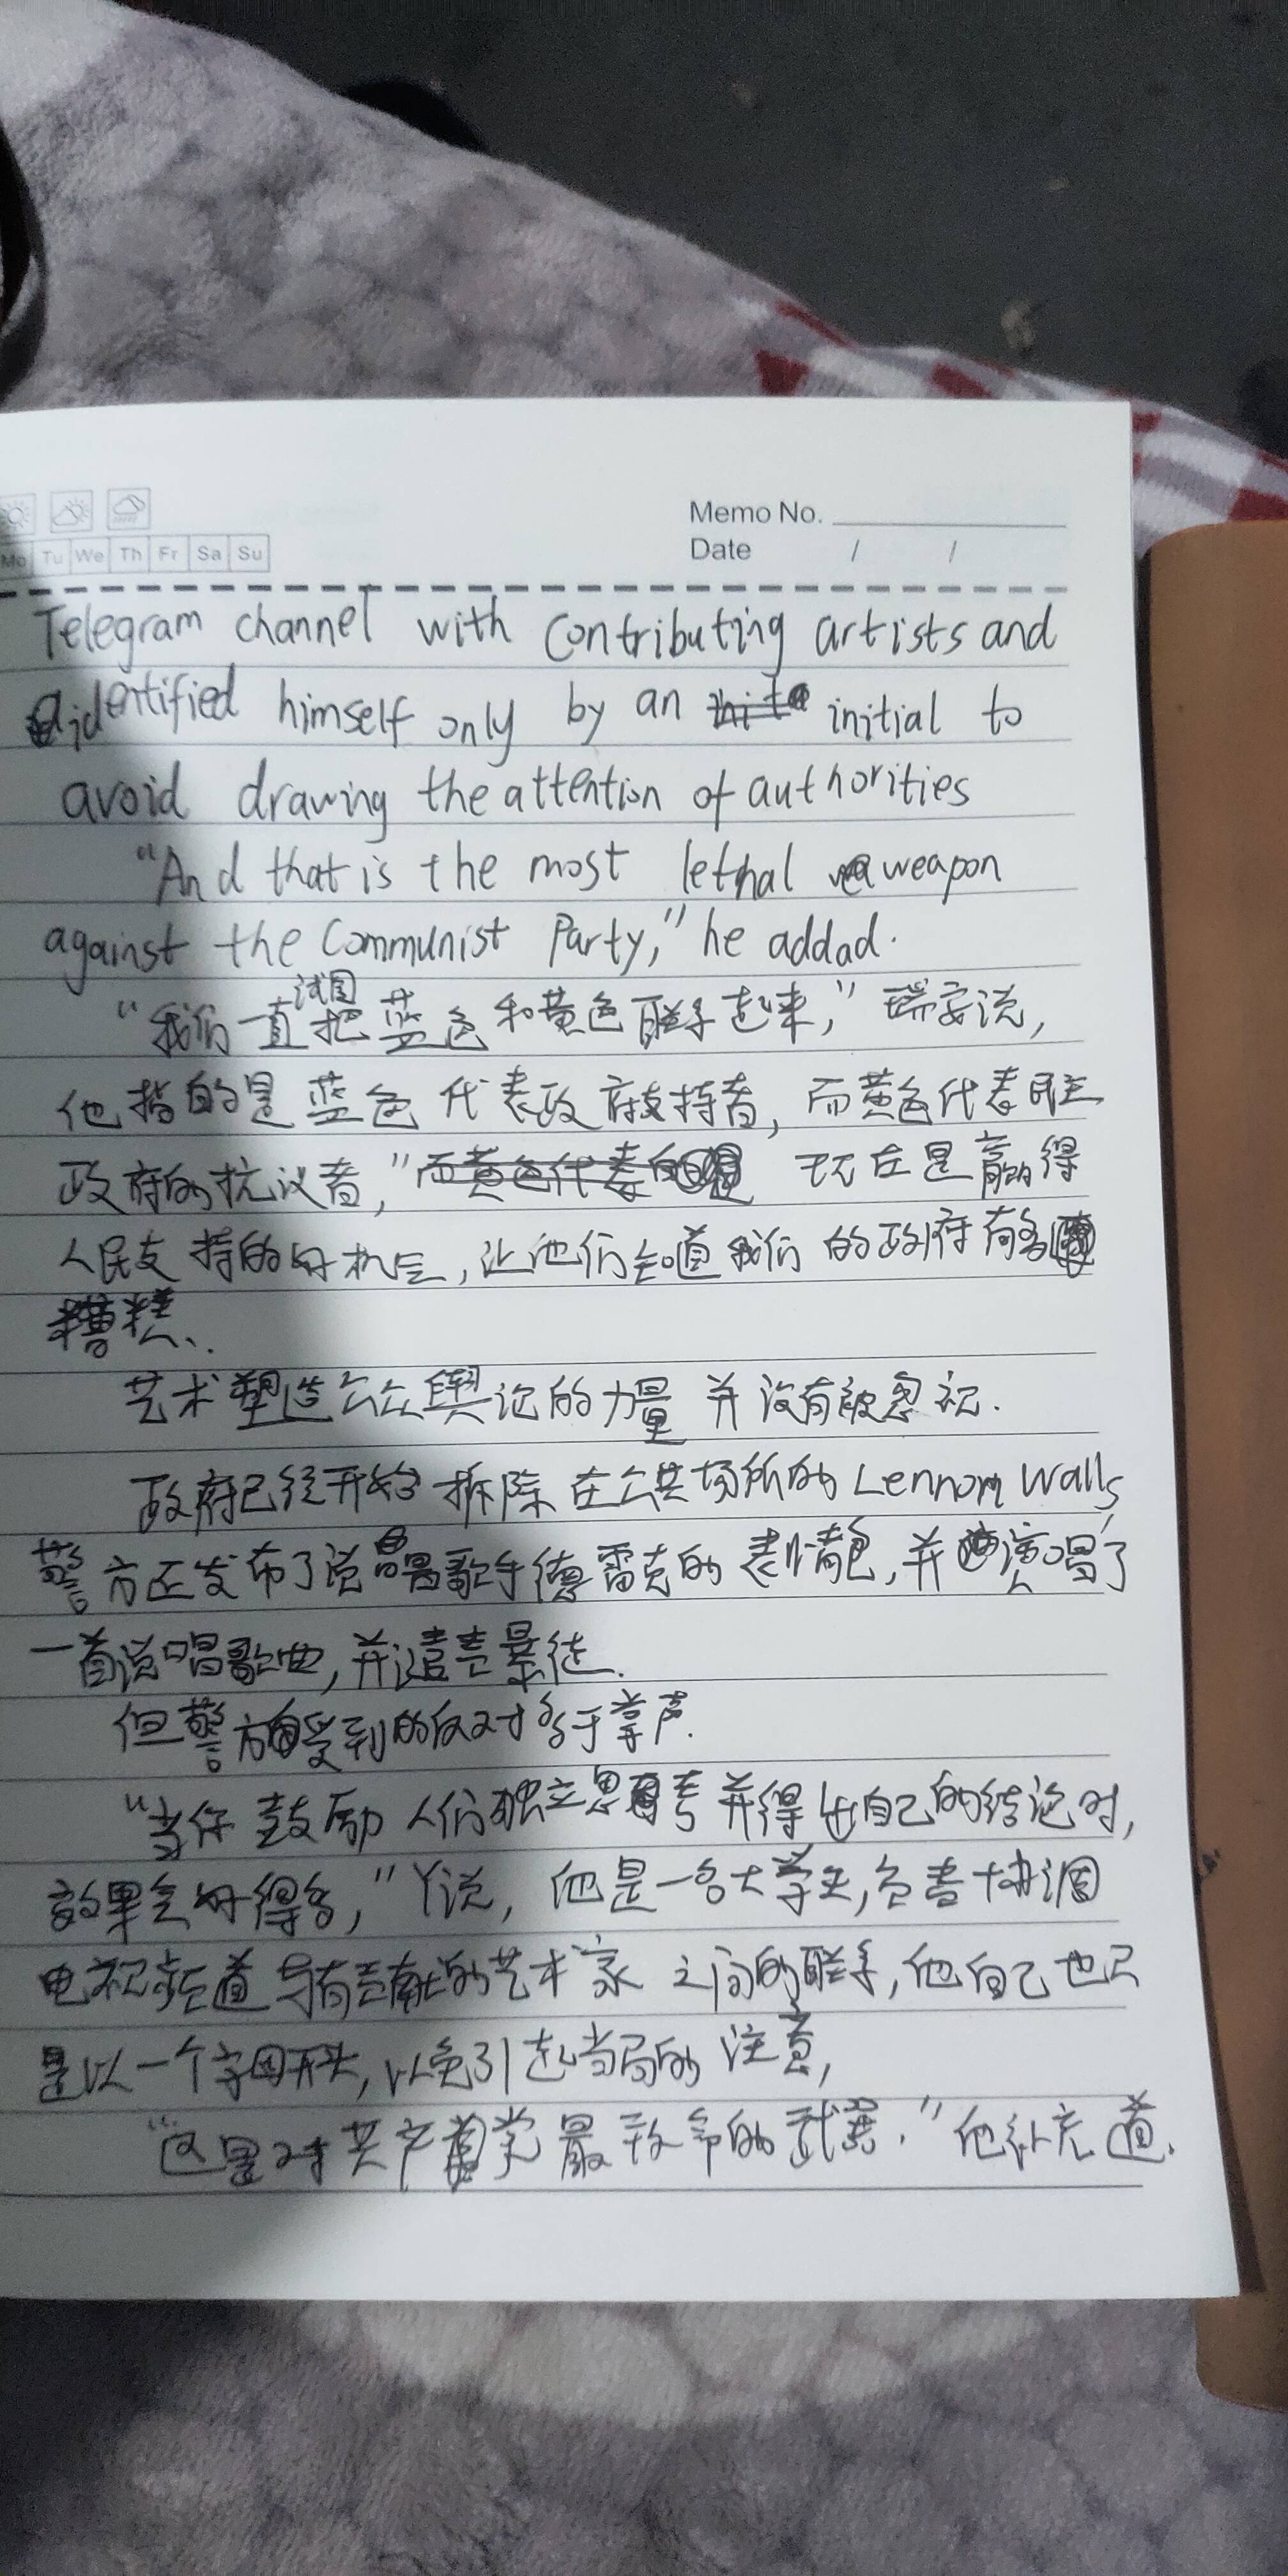 Memo No.
Mo Tu We Th Fr Sa Su
Date / /
Telegram channel with contributing artists and
identified himself only by an initial to
avoid drawing the attention of authorities
"And that is the most lethal weapon
against the Communist Party," he addad.
"我们一直试图把蓝色和黄色联系起来," 瑞安说,
他指的是蓝色代表政府支持者, 而黄色代表民主
政府的抗议者,"而黄色代表的是 现在是赢得
人民支持的好机会, 让他们知道我们的政府有多
糟糕.
艺术塑造公众舆论的力量并没有被忽视.
政府已经开始拆除在公共场所的 Lennon Walls
警方还发布了说唱歌手德雷克的表情包, 并演唱了
一首说唱歌曲, 并谴责暴徒.
但警方受到的反对多于掌声.
"当你鼓励人们独立思考并得出自己的结论时,
效果会好得多," Y说, 他是一名大学生, 负责协调
电视频道与有贡献的艺术家之间的联系, 他自己也只
是以一个字母开头, 以免引起当局的注意,
"这是对共产党最致命的武器." 他补充道.